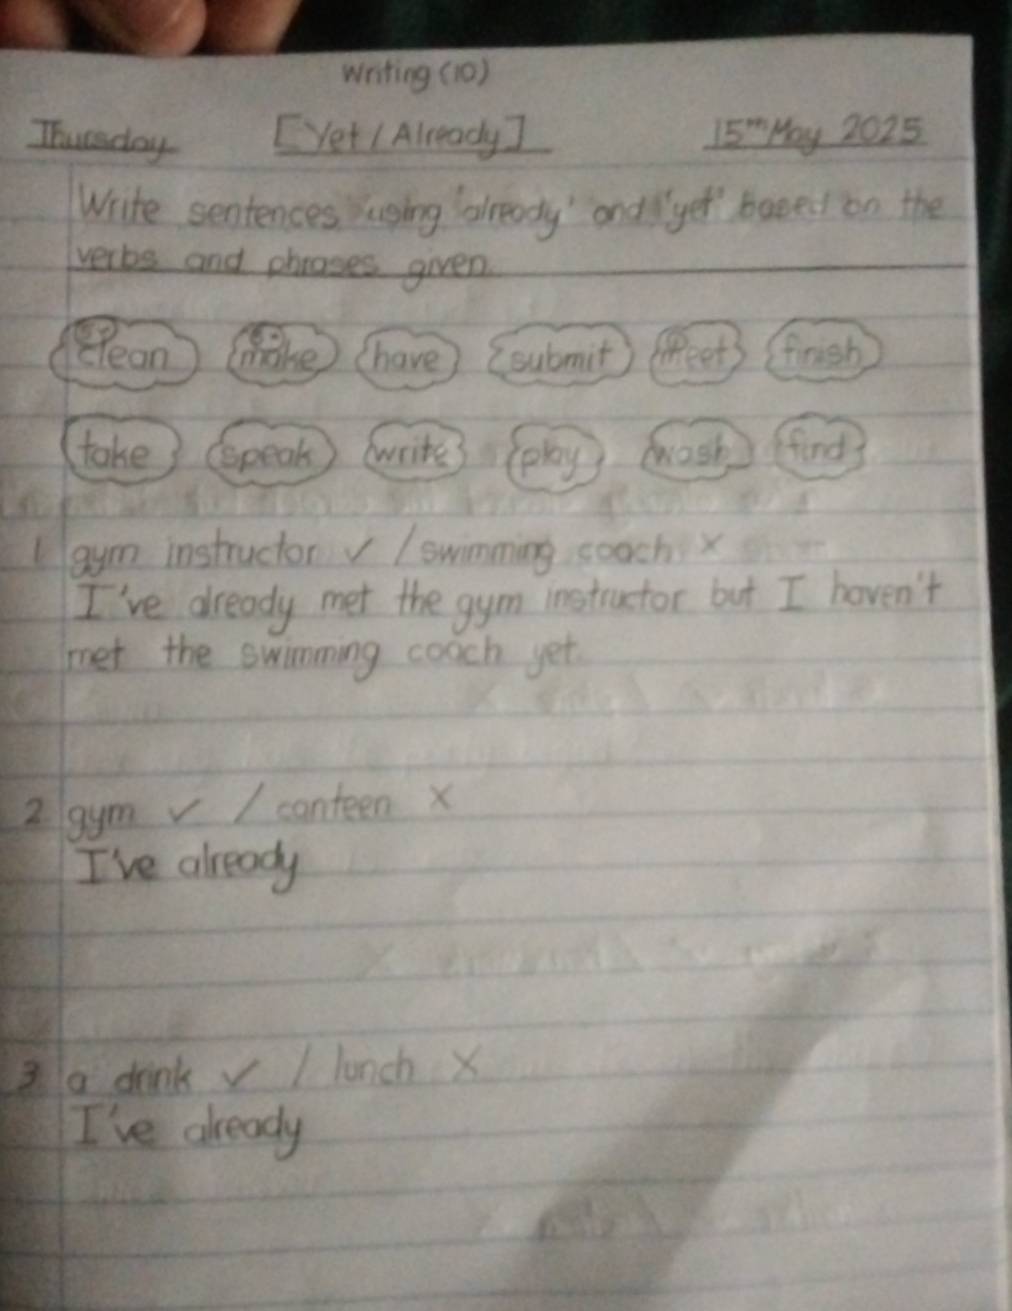 Writing (10)
Thursday [Yet / Already] 15th May 2025
Write sentences using 'already' and 'yet' based on the
verbs and phrases given.
clean make have submit meet finish
take speak write play wash find
1 gym instructor ✓ / swimming coach X
I've already met the gym instructor but I haven't
met the swimming coach yet.
2 gym ✓ / canteen X
I've already
3 a drink ✓ / lunch X
I've already